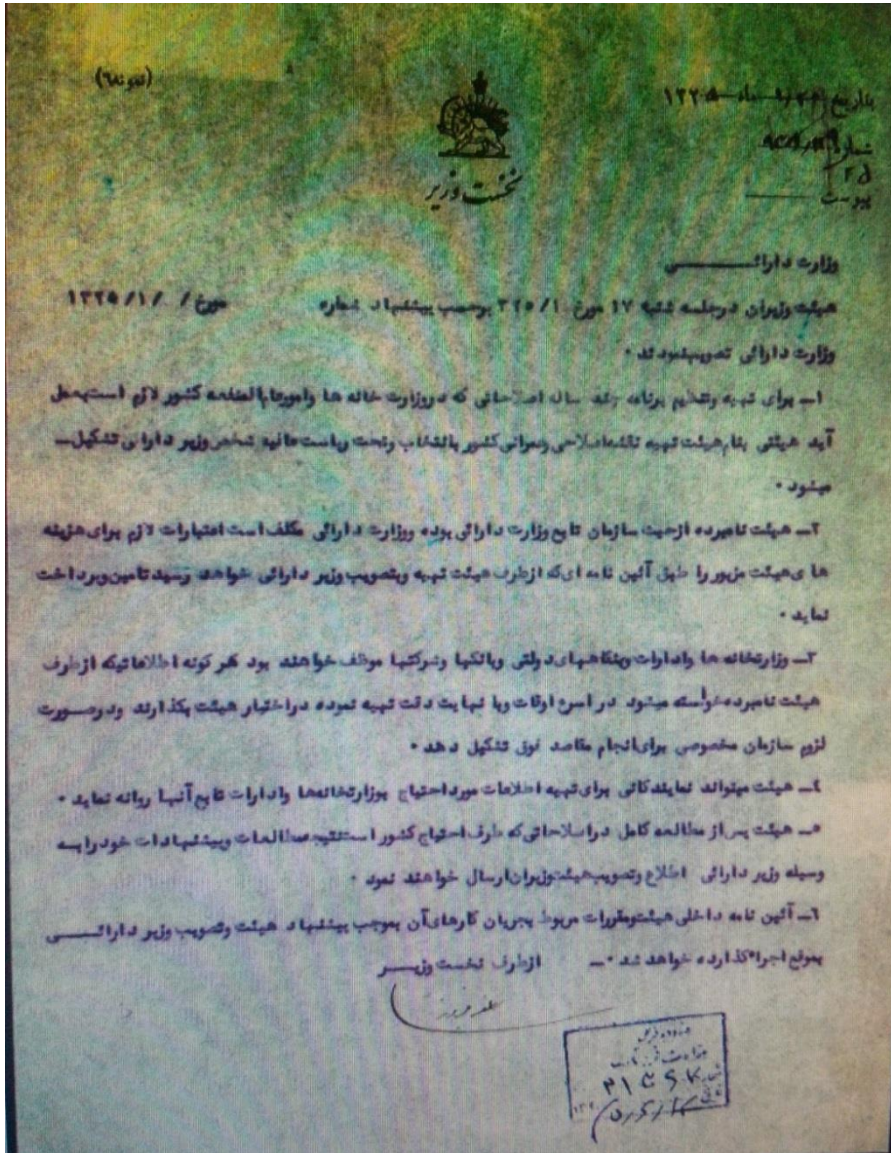 (نمونه۶)
بتاریخ ماه ۱۳۲۵
شماره
پیوست
نخست وزیر
وزارت دارائـــــی
هیئت وزیران درجلسه شنبه ۱۷ مورخ ۳۲۵/۱ برحسب پیشنهاد شماره مورخ / /۱۳۲۵/۱
وزارت دارائی تصویب نمودند ۰
۱ـ برای تهیه وتنظیم برنامه چند ساله اصلاحاتی که دروزارت خانه ها وامور کشور لازم است بعمل
آید هیئتی بنام هیئت تهیه نقشه اصلاحی وعمرانی کشور بانتخاب وتحت ریاست عالیه شخص وزیر دارائی تشکیل ـ
میشود ۰
۲ـ هیئت نامبرده ازحیث سازمان تابع وزارت دارائی بوده ووزارت دارائی مکلف است اعتبارات لازم برای هزینه
ها ی هیئت مزبور را طبق آئین نامه ای که ازطرف هیئت تهیه وبتصویب وزیر دارائی خواهد رسید تامین وپرداخت
نماید ۰
۳ـ وزارتخانه ها وادارات وبنگاههای دولتی وبانکها وشرکتها موظف خواهند بود هر گونه اطلاعاتیکه ازطرف
هیئت نامبرده خواسته میشود در اسرع اوقات وبا نهایت دقت تهیه نموده دراختیار هیئت بگذارند ودرصورت
لزوم سازمان مخصوصی برای انجام مقاصد فوق تشکیل دهد ۰
٤ـ هیئت میتواند نمایندگانی برای تهیه اطلاعات مورد احتیاج بوزارتخانه‌ها وادارات تابع آنها روانه نماید ۰
۵ـ هیئت پس از مطالعه کامل دراصلاحاتی که طرف احتیاج کشور است نتیجه مطالعات وپیشنهادات خود رابه
وسیله وزیر دارائی اطلاع وتصویب هیئت وزیران ارسال خواهند نمود ۰
٦ـ آئین نامه داخلی هیئت ومقررات مربوط بجریان کارهای آن بموجب پیشنهاد هیئت وتصویب وزیر دارائـــــی
بموقع اجرا گذارده خواهد شد ۰ــ ازطرف نخست وزیـــر